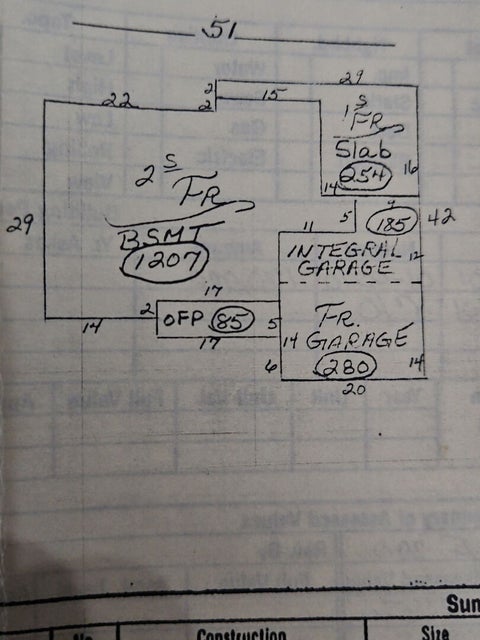 51
29
2
22
2
15
1 S
FR
Slab
254
16
14
2 S
FR
BSMT
1207
29
7
5
185
42
11
INTEGRAL
GARAGE
12
17
2
OFP 85
5
14
17
FR.
14 GARAGE
280
6
14
20
Sum
No
Construction
Size